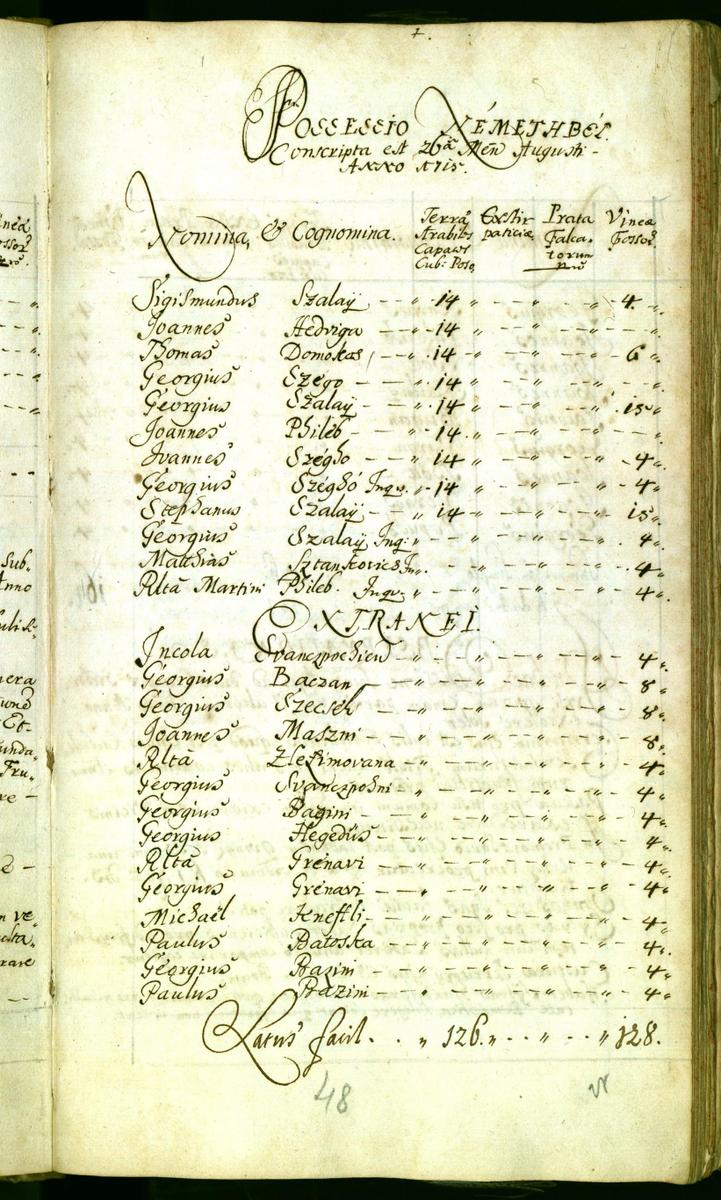 +.
Possessio Némethbél
Conscripta est 26a Men Augusti -
Anno 1715.
Nomina, & Cognomina. Terra Arabilis Capaws Cub: Poso, Exstirpaticiæ Prata Falcatorum Vineæ Fossor.
Sigismundus Szalaÿ — „ 14 „ — „ — „ 4. „
Joannes Hedviga — „ 14 „ — „ — „ — „
Thomas Domokos — „ 14 „ — „ — „ 6 „
Georgius Szégo — „ 14 „ — „ — „ — „
Georgius Szalaÿ — „ 14 „ — „ — „ 15 „
Joannes Philéb — „ 14 „ — „ — „ — „
Joannes Szégho — „ 14 „ — „ — „ 4 „
Georgius Szeghó Inqu. „ 14 „ — „ — „ 4 „
Stephanus Szalaÿ — „ 14 „ — „ — „ 15 „
Georgius Szalaÿ Inq: „ — „ — „ — „ 4 „
Mathias Sztankovics In. „ — „ — „ — „ 4 „
Rltã Martini Philéb. Inqu. „ — „ — „ — „ 4 „
Extranei
Incola — „ — „ — „ — „ 4 „
Georgius Baczan — „ — „ — „ — „ 8 „
Georgius Szecsek — „ — „ — „ — „ 8 „
Joannes Maszni — „ — „ — „ — „ 8 „
Rltã — „ — „ — „ — „ 4 „
Georgius Svanczpohni „ — „ — „ — „ 4 „
Georgius Bagini — „ — „ — „ — „ 4 „
Georgius Hegedüs — „ — „ — „ — „ 4 „
Rltã Grénavi — „ — „ — „ — „ 4 „
Georgius Grénavi — „ — „ — „ — „ 4 „
Michaël Heneffli — „ — „ — „ — „ 4 „
Paulus Batoska — „ — „ — „ — „ 4 „
Georgius Bazini — „ — „ — „ — „ 4 „
Paulus Bazini — „ — „ — „ — „ 4 „
Latus facit . . „ 126. „ . . „ . . „ 128.
48